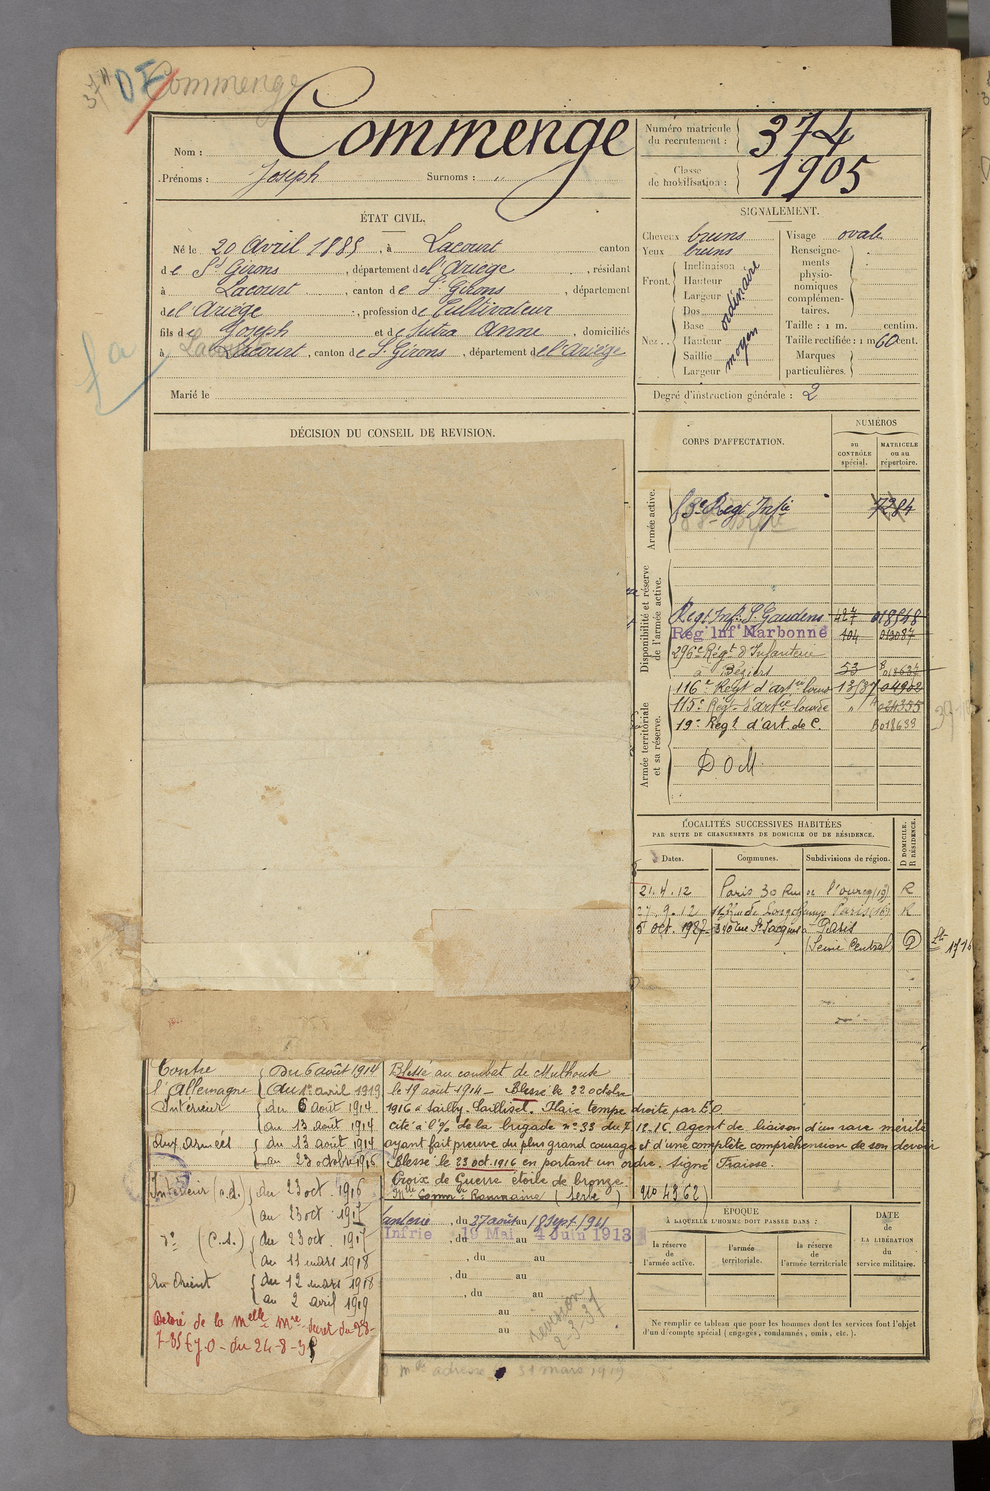 Commenge
Nom : Commenge
Prénoms : Joseph Surnoms : „
Numéro matricule du recrutement : 374
Classe de mobilisation : 1905
ÉTAT CIVIL.
Né le 20 Avril 1885, à Lacourt canton
de St Girons, département de l'Ariège, résidant
à Lacourt, canton de St Girons, département
de l'Ariège, profession de Cultivateur
fils de Joseph et de Sutra Anne, domiciliés
à Lacourt, canton de St Girons, département de l'Ariège
Marié le
SIGNALEMENT.
Cheveux bruns
Yeux bruns
Front. Inclinaison Hauteur Largeur ordinaire
Nez . . Dos Base Hauteur Saillie Largeur moyen
Visage ovale
Renseigne-
ments
physio-
nomiques
complémen-
taires.
Taille : 1 m. centim.
Taille rectifiée : 1 m 60 cent.
Marques
particulières.
Degré d'instruction générale : 2
DÉCISION DU CONSEIL DE REVISION.
CORPS D'AFFECTATION.
NUMÉROS
au CONTRÔLE spécial.
MATRICULE ou au répertoire.
Armée active.
83e Régt Infie 7284
Disponibilité et réserve de l'armée active.
Régt Inf. St Gaudens 427 018548
Reg Inf Narbonne 104
296e Régt d'Infanterie
à Béziers 53
Armée territoriale et sa réserve.
116e Régt d'artie lourde 13587 04902
115e Régt d'artie lourde „ 024355
19e Régt d'art. de C. 018633
D O M
LOCALITÉS SUCCESSIVES HABITÉES
PAR SUITE DE CHANGEMENTS DE DOMICILE OU DE RÉSIDENCE.
Dates. Communes. Subdivisions de région. D DOMICILE. R RÉSIDENCE.
21. 4. 12 Paris 30 Rue de l'ourcq (19) R
27. 9. 12 Rue de Longchamp Paris R
5 oct. 1927 340 rue St Jacques à Paris
(Seine Central) D
Contre l'Allemagne { Du 6 août 1914
au 1er avril 1919
Intérieur { du 6 août 1914
au 13 août 1914
Aux Armées { du 13 août 1914
au 23 octobre 1916
Intérieur (c.d.) { du 23 oct. 1916
au 23 oct. 1917
do (C.S.) { du 23 oct. 1917
au 11 mars 1918
En Orient { du 12 mars 1918
au 2 avril 1919
Décoré de la Melle Mre décret du 28-
7-35 J.O - du 24-8-35
Blessé au combat de Mulhouse
le 19 août 1914 - Blessé le 22 octobre
1916 à Sailly-Saillisel. Plaie tempe droite par E.O
Cité à l'O/ de la brigade no 33 du 7.12.16. Agent de liaison d'un rare mérite
ayant fait preuve du plus grand courage et d'une complète compréhension de son devoir
Blessé le 23 oct. 1916 en portant un ordre. Signé Fraisse.
Croix de Guerre étoile de bronze.
Mlle Commve Roumaine (Serbe) No 4362)
du 27 août au 18 sept. 1911
Infrie du 19 Mai au 4 Juin 1913
, du au
, du au
, du au
au
au
revision
2-3-37
ÉPOQUE
À LAQUELLE L'HOMME DOIT PASSER DANS :
la réserve de l'armée active.
l'armée territoriale.
la réserve de l'armée territoriale
DATE
de
LA LIBÉRATION
du
service militaire.
Ne remplir ce tableau que pour les hommes dont les services font l'objet
d'un décompte spécial (engagés, condamnés, omis, etc.).
adresse 31 mars 1919